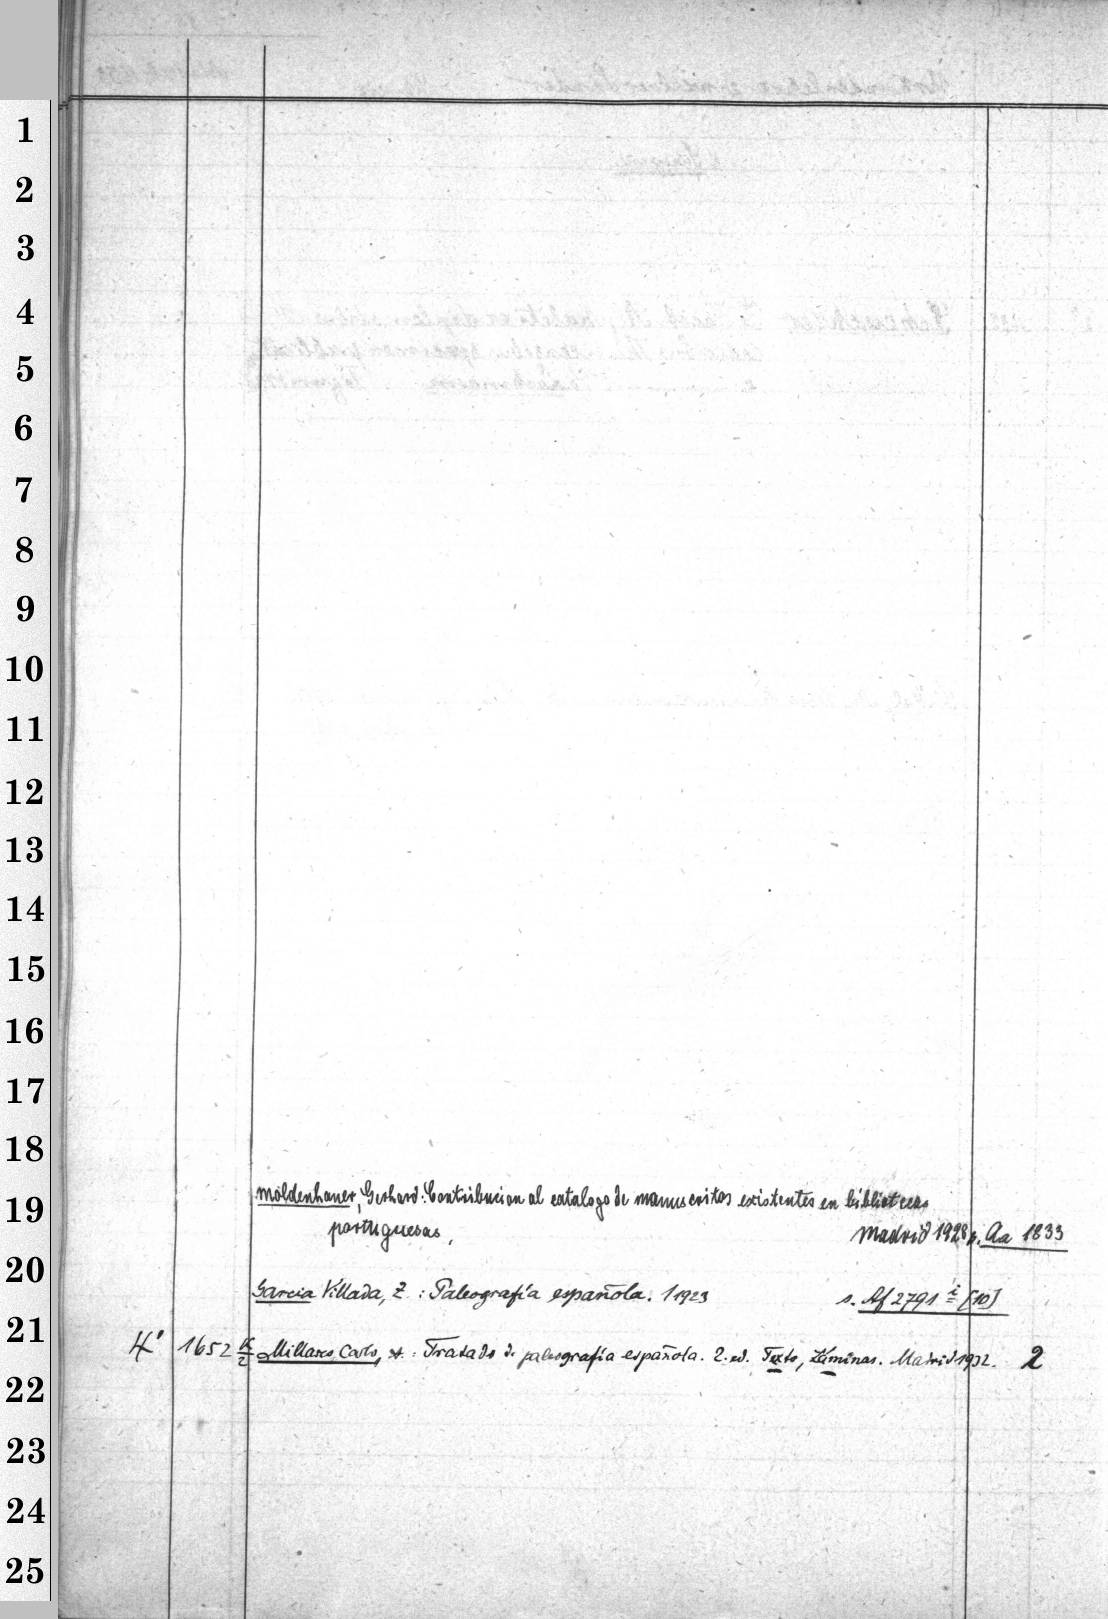 1
2
3
4
5
6
7
8
9
10
11
12
13
14
15
16
17
18
19
20
21
22
23
24
25
Moldenhauer, Gerhard: Contribucion al catalogo de manuscritos existentes en bibliotecas
portuguesas, Madrid 1928 s. Aa 1833
Garcia Villada, Z.: Paleografía española. 1923 s. Af 2791 i [10]
4° 1652 Millares Carlo, A.: Tratado de paleografía española. 2. ed. Texto, Láminas. Madrid 1932. 2